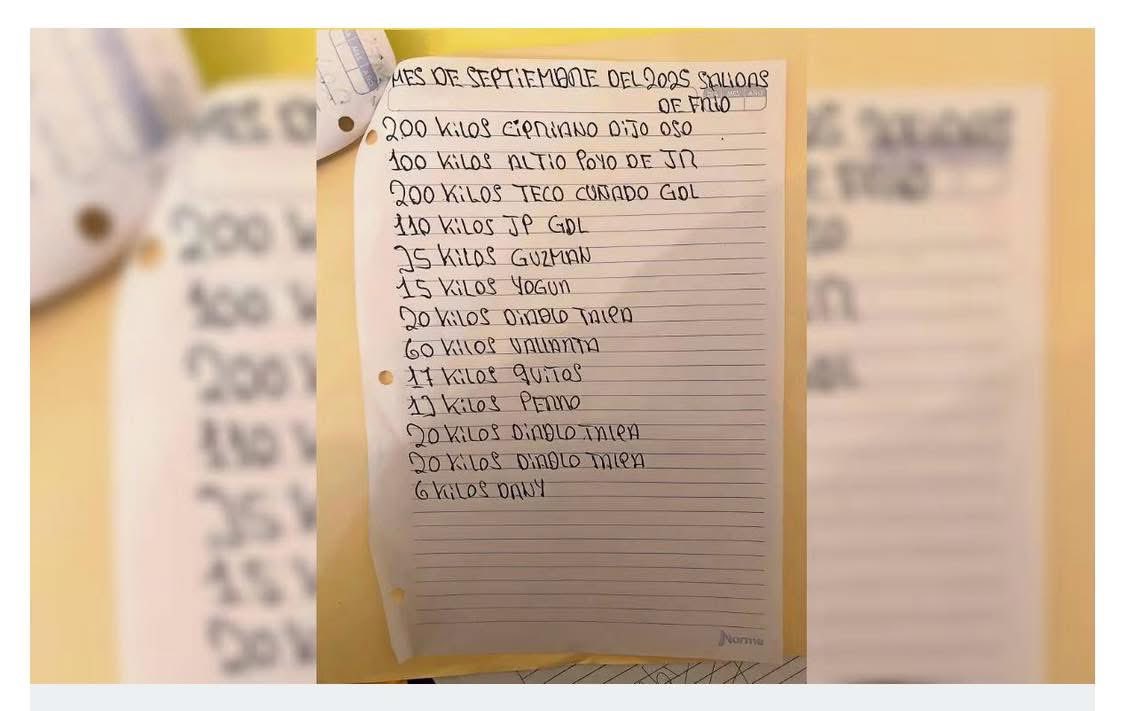 MES DE SEPTIEMBRE DEL 2025 SALIDAS
DE FRIO
200 KILOS CIPRIANO DIJO OSO
100 KILOS AL TIO POYO DE JR
200 KILOS TECO CUÑADO GDL
110 KILOS JP GDL
35 KILOS GUZMAN
15 KILOS YOGUR
20 KILOS DIABLO TALPA
60 KILOS VALLARTA
17 KILOS QUITOS
13 KILOS PERRO
20 KILOS DIABLO TALPA
20 KILOS DIABLO TALPA
6 KILOS DANY
Norma